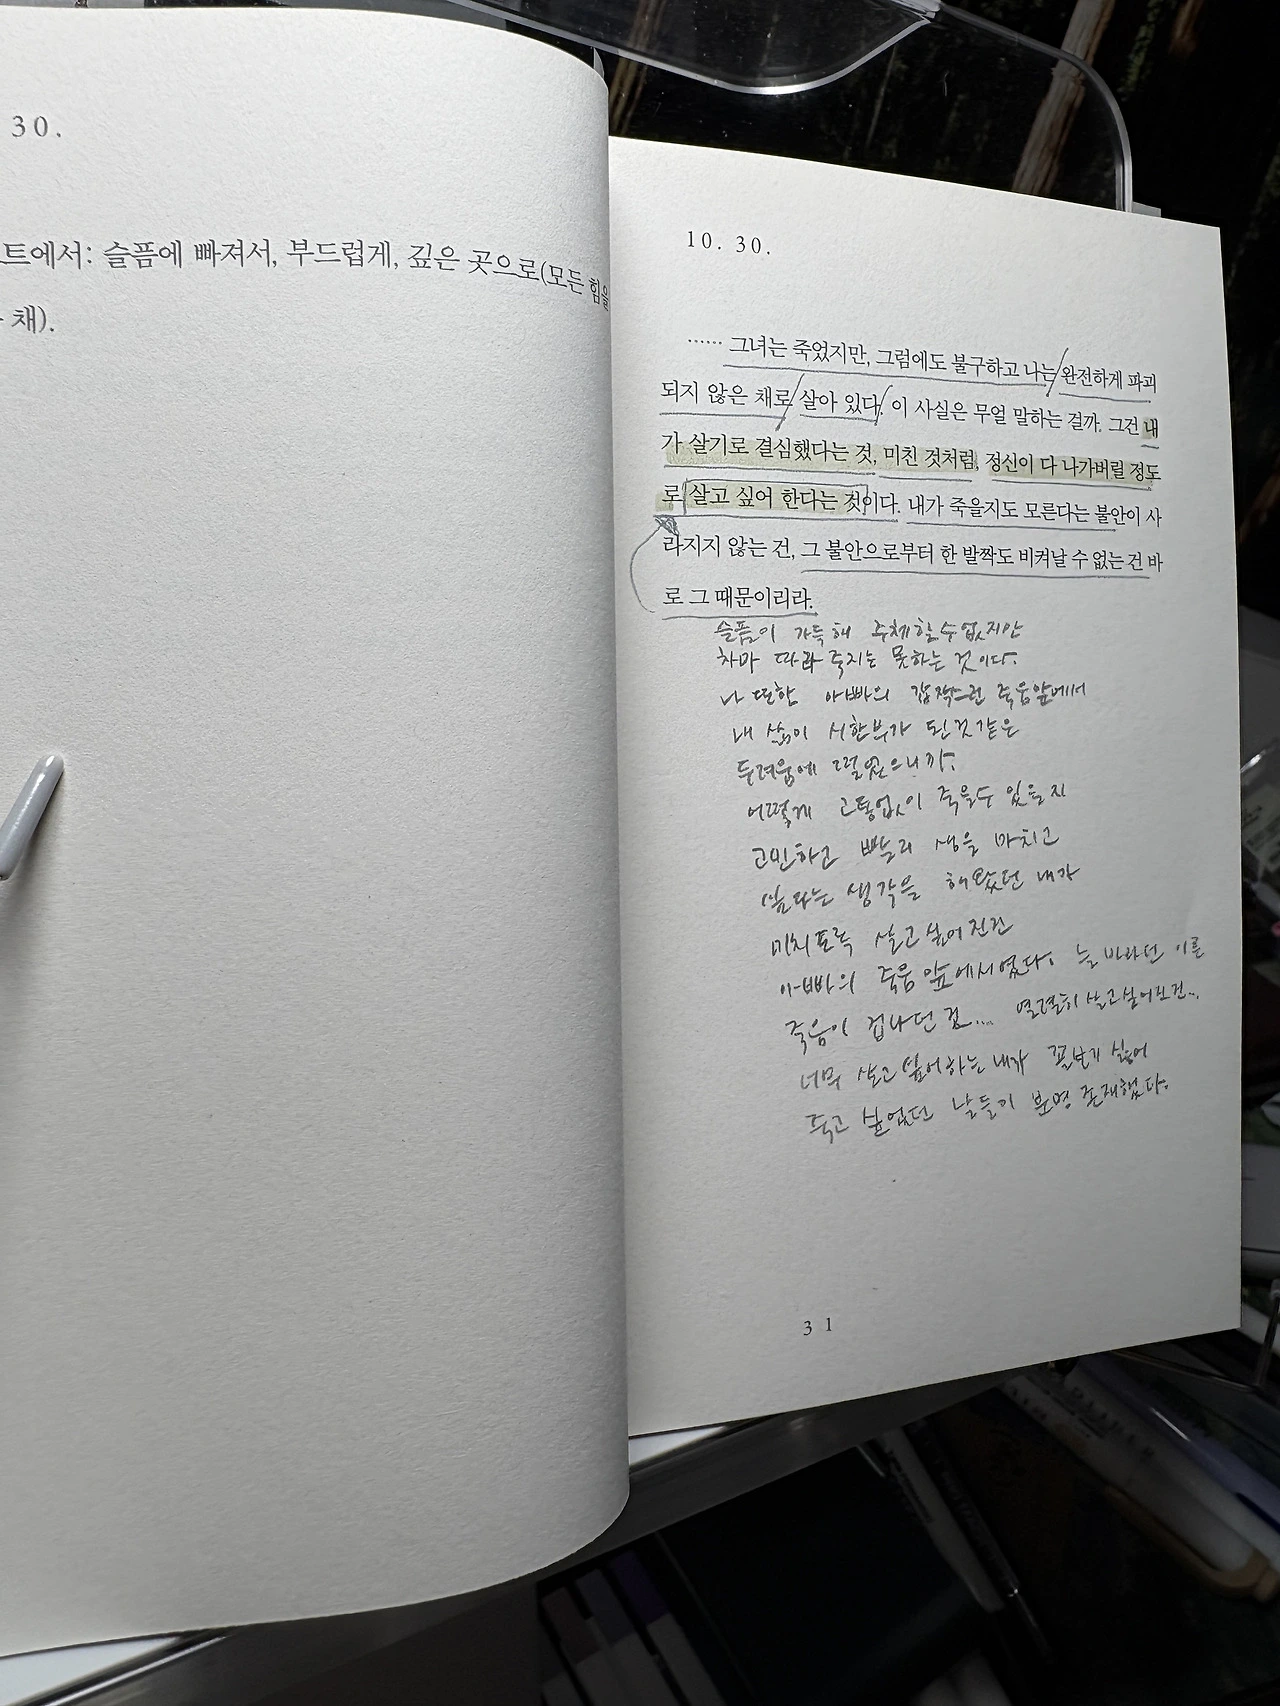 30.
트에서: 슬픔에 빠져서, 부드럽게, 깊은 곳으로(모든 힘을
채).
10. 30.
…… 그녀는 죽었지만, 그럼에도 불구하고 나는 완전하게 파괴
되지 않은 채로 살아 있다. 이 사실은 무얼 말하는 걸까. 그건 내
가 살기로 결심했다는 것, 미친 것처럼, 정신이 다 나가버릴 정도
로 살고 싶어 한다는 것이다. 내가 죽을지도 모른다는 불안이 사
라지지 않는 건, 그 불안으로부터 한 발짝도 비켜날 수 없는 건 바
로 그 때문이리라.
슬픔이 가득해 주체할 수 없지만
차마 따라 죽지는 못하는 것이다.
나 또한 아빠의 갑작스런 죽음앞에서
내 삶이 시한부가 된것 같은
두려움에 떨었으니까.
어떻게 고통없이 죽을수 있을지
고민하고 빨리 생을 마치고
싶다는 생각을 해왔던 내가
미치도록 살고 싶어진건
아빠의 죽음 앞에서였다. 늘 바라던 이른
죽음이 겁나던 건... 열렬히 살고 싶어진건...
너무 살고 싶어하는 내가 꼴보기 싫어
죽고 싶었던 날들이 분명 존재했다.
31